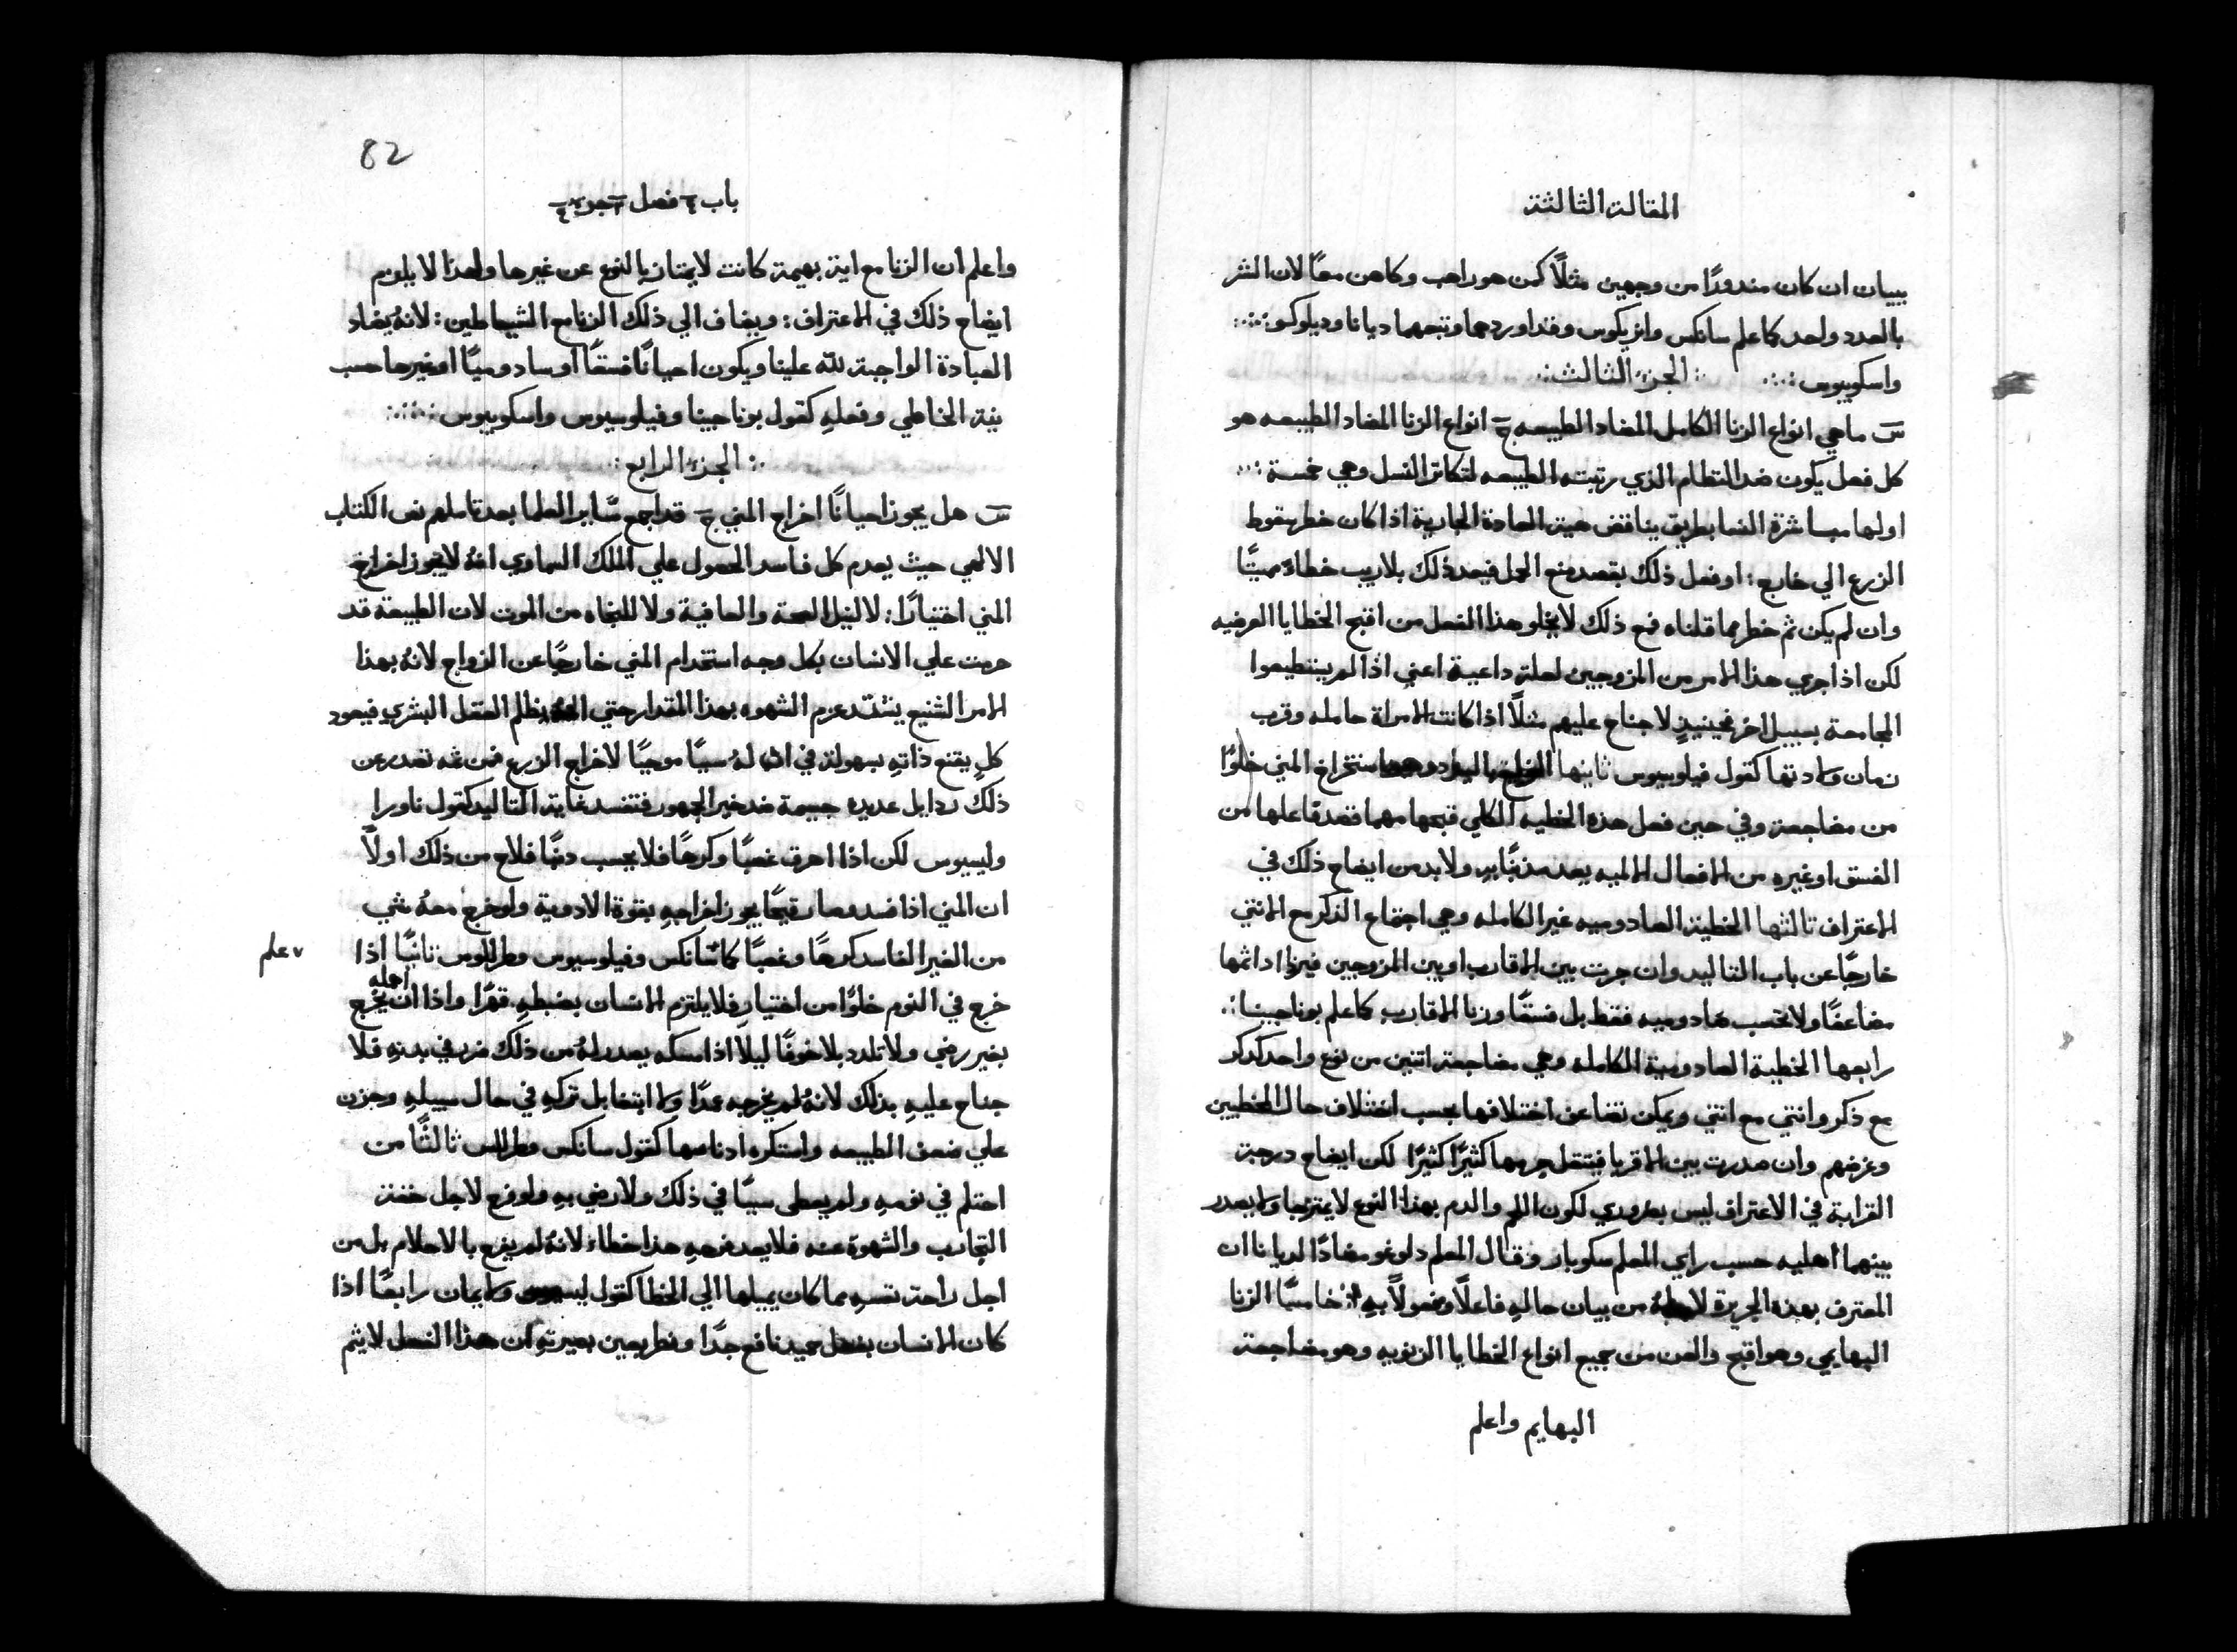 المقالة الثالثة
ببيان ان كان مندورًا من وجهين مثلًا كمن هو راهب وكاهن معًا لان الشر
بالعدد واحد كما علم سانكس وانريكوس وقد اوردهما وتبعهما ديانا وديلوكو
واسكوبيوس
الجزء الثالث
س ما هي انواع الزنا الكامل المضاد الطبيعه ج انواع الزنا المضاد الطبيعه هو
كل فعل يكون ضد النظام الذي رتبته الطبيعه لتكاثر النسل وهي خمسة
اولها مباشرة النسا بطريق يناقض هية العادة الجارية اذا كان خطر سقوط
الزرع الي خارج: او فعل ذلك بقصد منع الحمل فيعد ذلك بلا ريب خطاء مميتًا
وان لم يكن ثم خطر مما قلناه فمع ذلك لا يخلو هذا الفعل من اقبح الخطايا العرضيه
لكن اذا جري هذا الامر من المزوجين لعلة داعية اعني اذا لم يستطيعوا
المجامعة بسبيل اخر فحينيذٍ لا جناح عليهم مثلًا اذا كانت الامراة حامله وقرب
زمان ولادتها كقول فيلوسيوس ثانيها استخراغ المني خلوًا
من مضاجعة وفي حين فعل هذه الخطيه الكلي قبحها مهما قصد فاعلها من
الفسق او غيره من الافعال الاليه يعد مذنبًا به ولا بد من ايضاح ذلك في
الاعتراف ثالثها الخطية الصادوميه غير الكامله وهي اجتماع الذكر مع الانثي
خارجًا عن باب التاليد وان جرت بين الاقارب او بين المزوجين فيزداد اثمها
مضاعفًا ولا تحسب صادوميه فقط بل فسقًا وزنا الاقارب كما علم بوناجينا
رابعها الخطية الصادومية الكامله وهي مضاجعة اثنين من نوع واحد كذكر
مع ذكر وانثي مع انثي ويمكن تضاعف اختلافها بحسب اختلاف حال المخطيين
وغرضهم وان صدرت بين الاقربا فيثقل جرمها كثيرًا كثيرًا لكن ايضاح درجة
القرابة في الاعتراف ليس بضروري لكون اللحم والدم بهذا النوع لا يمتزجا ولا يصدر
بينهما اهليه حسب راي المعلم سكوبار وقال المعلم دلوغو مضادًا لديانا ان
المعترف بهذه الجريرة لا من بيان حاله فاعلًا ومفعولًا به خامسًا الزنا
البهايمي وهو اقبح والعن من جميع انواع الخطايا الزنويه وهو مضاجعة
البهايم واعلم
82
باب فصل جزء
واعلم ان الزنا مع اية بهيمة كانت لا يمتاز بالنوع عن غيرها ولهذا لا يلزم
ايضاح ذلك في الاعتراف: ويضاف الي ذلك الزنا مع الشياطين: لانه يضاد
العبادة الواجبة لله علينا ويكون احيانًا فسقًا او سادوميًا او غيرها حسب
نية الخاطي وفعله كقول بوناجينا وفيلوسيوس واسكوبيوس
الجزء الرابع
س هل يجوز احيانًا اخراج المني ج قد اجمع ساير العلما بعد تاملهم نص الكتاب
الالهي حيث يعدم كل فاسد الحصول علي الملك السماوي انه لا يجوز اخراج
المني اختيارًا: لا لنيل الصحة والعافية ولا للنجاه من الموت لان الطبيعة قد
حرمت علي الانسان بكل وجه استخدام المني خارجًا عن الزواج لانه بهذا
الامر الشنيع يشتد عزم الشهوه بهذا المقدار حتي يظلم العقل البشري فيعود
كل يقنع ذاته بسهولة في ان له سببًا موجبًا لاخراج الزرع فمن ثمه تصدر عن
ذلك ردايل عديده جسيمة ضد خير الجمهور فتفسد غاية التاليد كقول ناورا
وليسيوس لكن اذا اهرق غصبًا وكرهًا فلا يحسب دنبًا فلاح من ذلك اولًا
ان المني اذا فسد وصار قيحًا يجوز اخراجه بقوة الادوية ولو خرج معه شي
من الغير الفاسد كرهًا وغصبًا كما سانكس وفيلوسيوس وطرللوس ثانيًا اذا
علم
خرج في النوم خلوًا من اختيارٍ فلا يلتزم الانسان بضبطه قهرًا واذا اهمله ان يخرج
بغير رضي ولا تلدد بلا خوفًا ليلا اذا مسكه يصدر له من ذلك ضرر في بدنه فلا
جناح عليه بذلك لانه لم يخرجه عمدًا ولا ابتغا بل تركه في حال سبيله وحزن
علي ضعف الطبيعه واستكره ادناسها كقول سانكس وطرللس ثالثًا من
احتلم في نومه ولم يعطي سببًا في ذلك ولا رضي به ولو فرح لاجل خفة
التجارب والشهوة عنه فلا يعد فرحه هذا خطاء لانه لم يفرح بالاحلام بل من
اجل راحة نفسه مما كان يميلها الي الخطا كقول ليسيوس ولايمان رابعًا اذا
كان الانسان بفعل حميد نافع جدًا ونظر بعين بصيرته ان هذا الفعل لا يتم